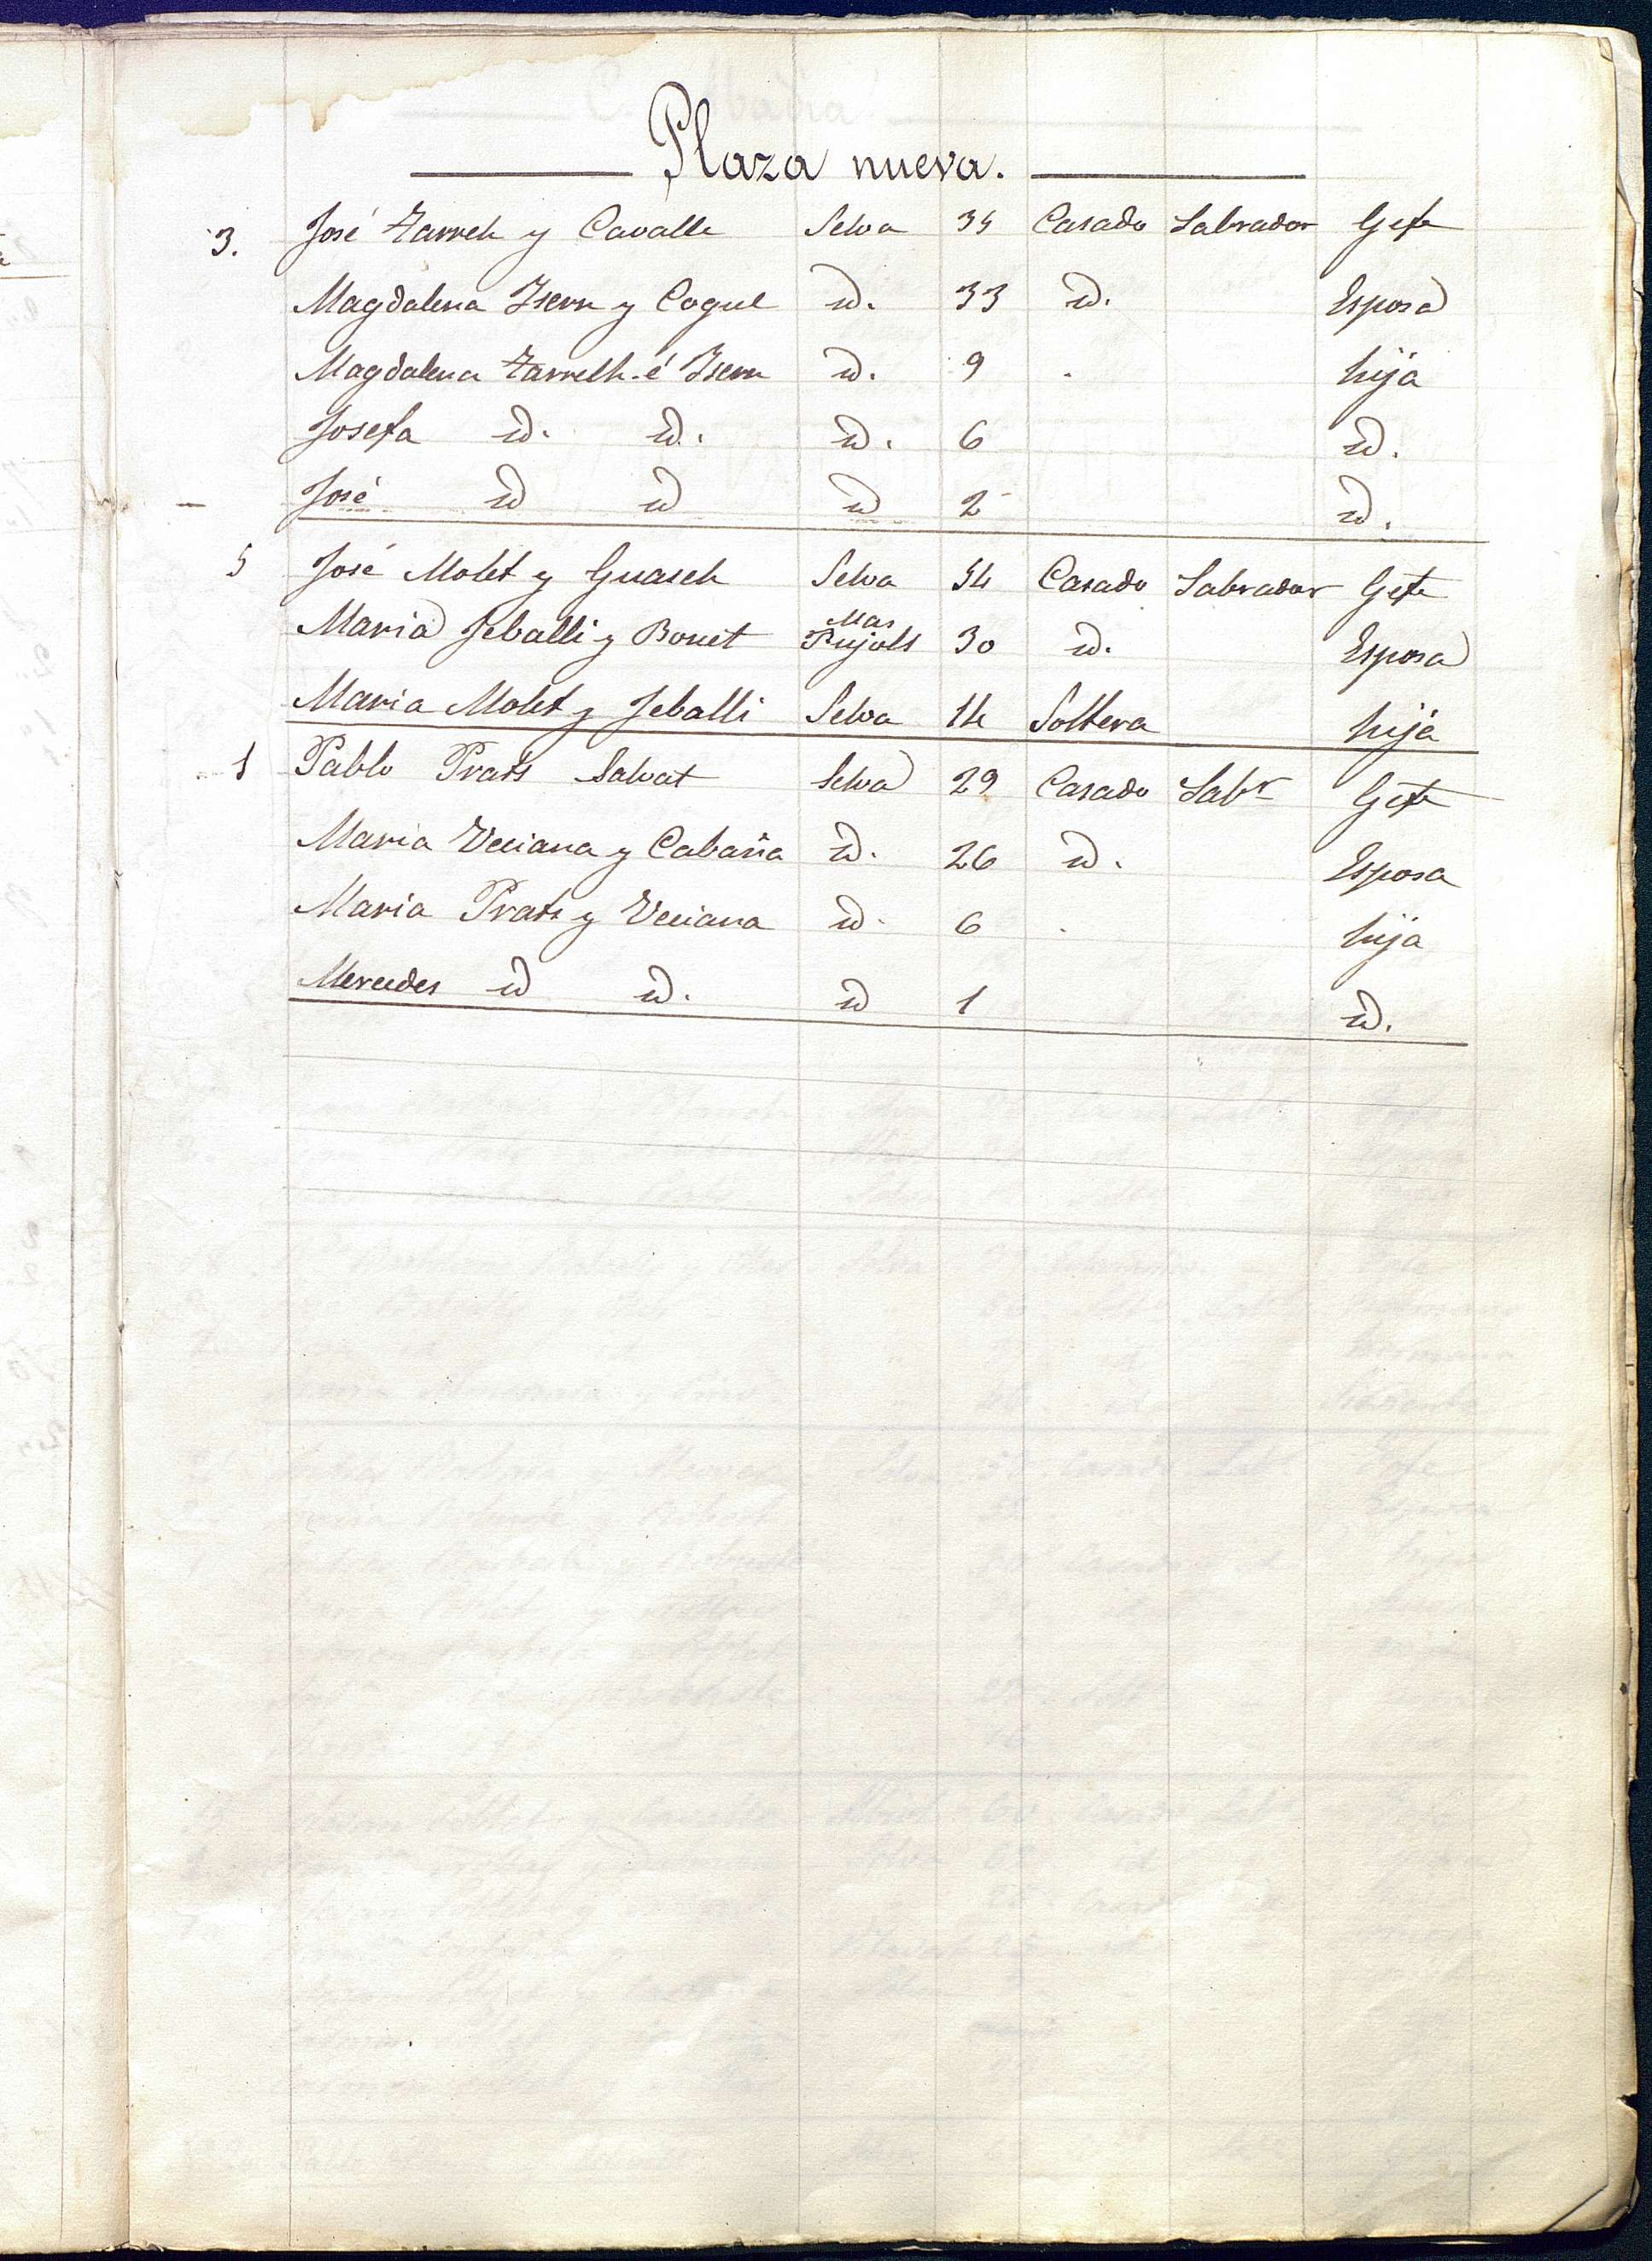 Plaza nueva.
3. José Zarrelh y Cavalle Selva 35 Casado Labrador Gefe
Magdalena Isern y Cogul id. 33 id. Esposa
Magdalena Zarrelh é Isern id. 9 hija
Josefa id. id. id. 6 id.
José id id id 2 id.
5 José Molet y Guasch Selva 34 Casado Labrador Gefe
Maria y Bonet Mas Pujols 30 id. Esposa
Maria Molet y Selva 14 Soltera hija
1 Pablo Prats Salvat Selva 29 Casado Labr Gefe
Maria Veciana y Cabaña id. 26 id. Esposa
Maria Prats y Veciana id. 6 hija
Mercedes id id. id 1 id.